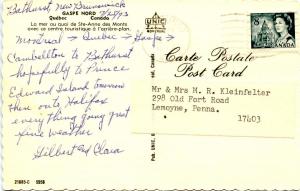 Bathurst, New Brunswick
7/25/73
GASPE NORD
Québec Canada
La mer au quai de Ste-Anne des Monts
avec ce centre touristique à l'arrière-plan.
Montreal → Quebec → Gaspe →
Cambellton to Bathurst
hopefully to Prince
Edward Island tomorrow
then onto Halifax
everything going great
fine weather
Gilbert and Clara
21083-C
UNIC
MONTREAL
Carte Postale
Post Card
8
Mr & Mrs H. R. Kleinfelter
298 Old Fort Road
Lemoyne, Penna.
17403